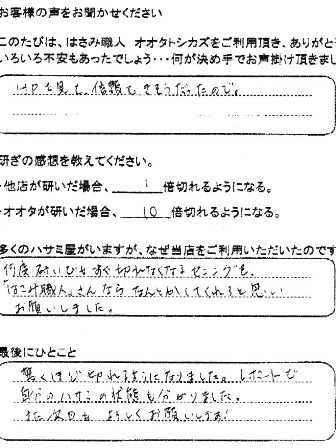 お客様の声をお聞かせください
このたびは、はさみ職人 オオタトシカズをご利用頂き、ありがと
いろいろ不安もあったでしょう・・・何が決め手でお声掛け頂きまし
HPを見て、信頼できそうだったので。
研ぎの感想を教えてください。
・他店が研いだ場合、 1 倍切れるようになる。
・オオタが研いだ場合、 10 倍切れるようになる。
多くのハサミ屋がいますが、なぜ当店をご利用いただいたのです
何度研いでもすぐ切れなくなるセニングを、
「はさみ職人」さんならなんとかしてくれると思い
お願いしました。
最後にひとこと
驚くほど切れるようになりました。レポートで
自分のハサミの状態も分かりました。
また次回も よろしくお願いします!